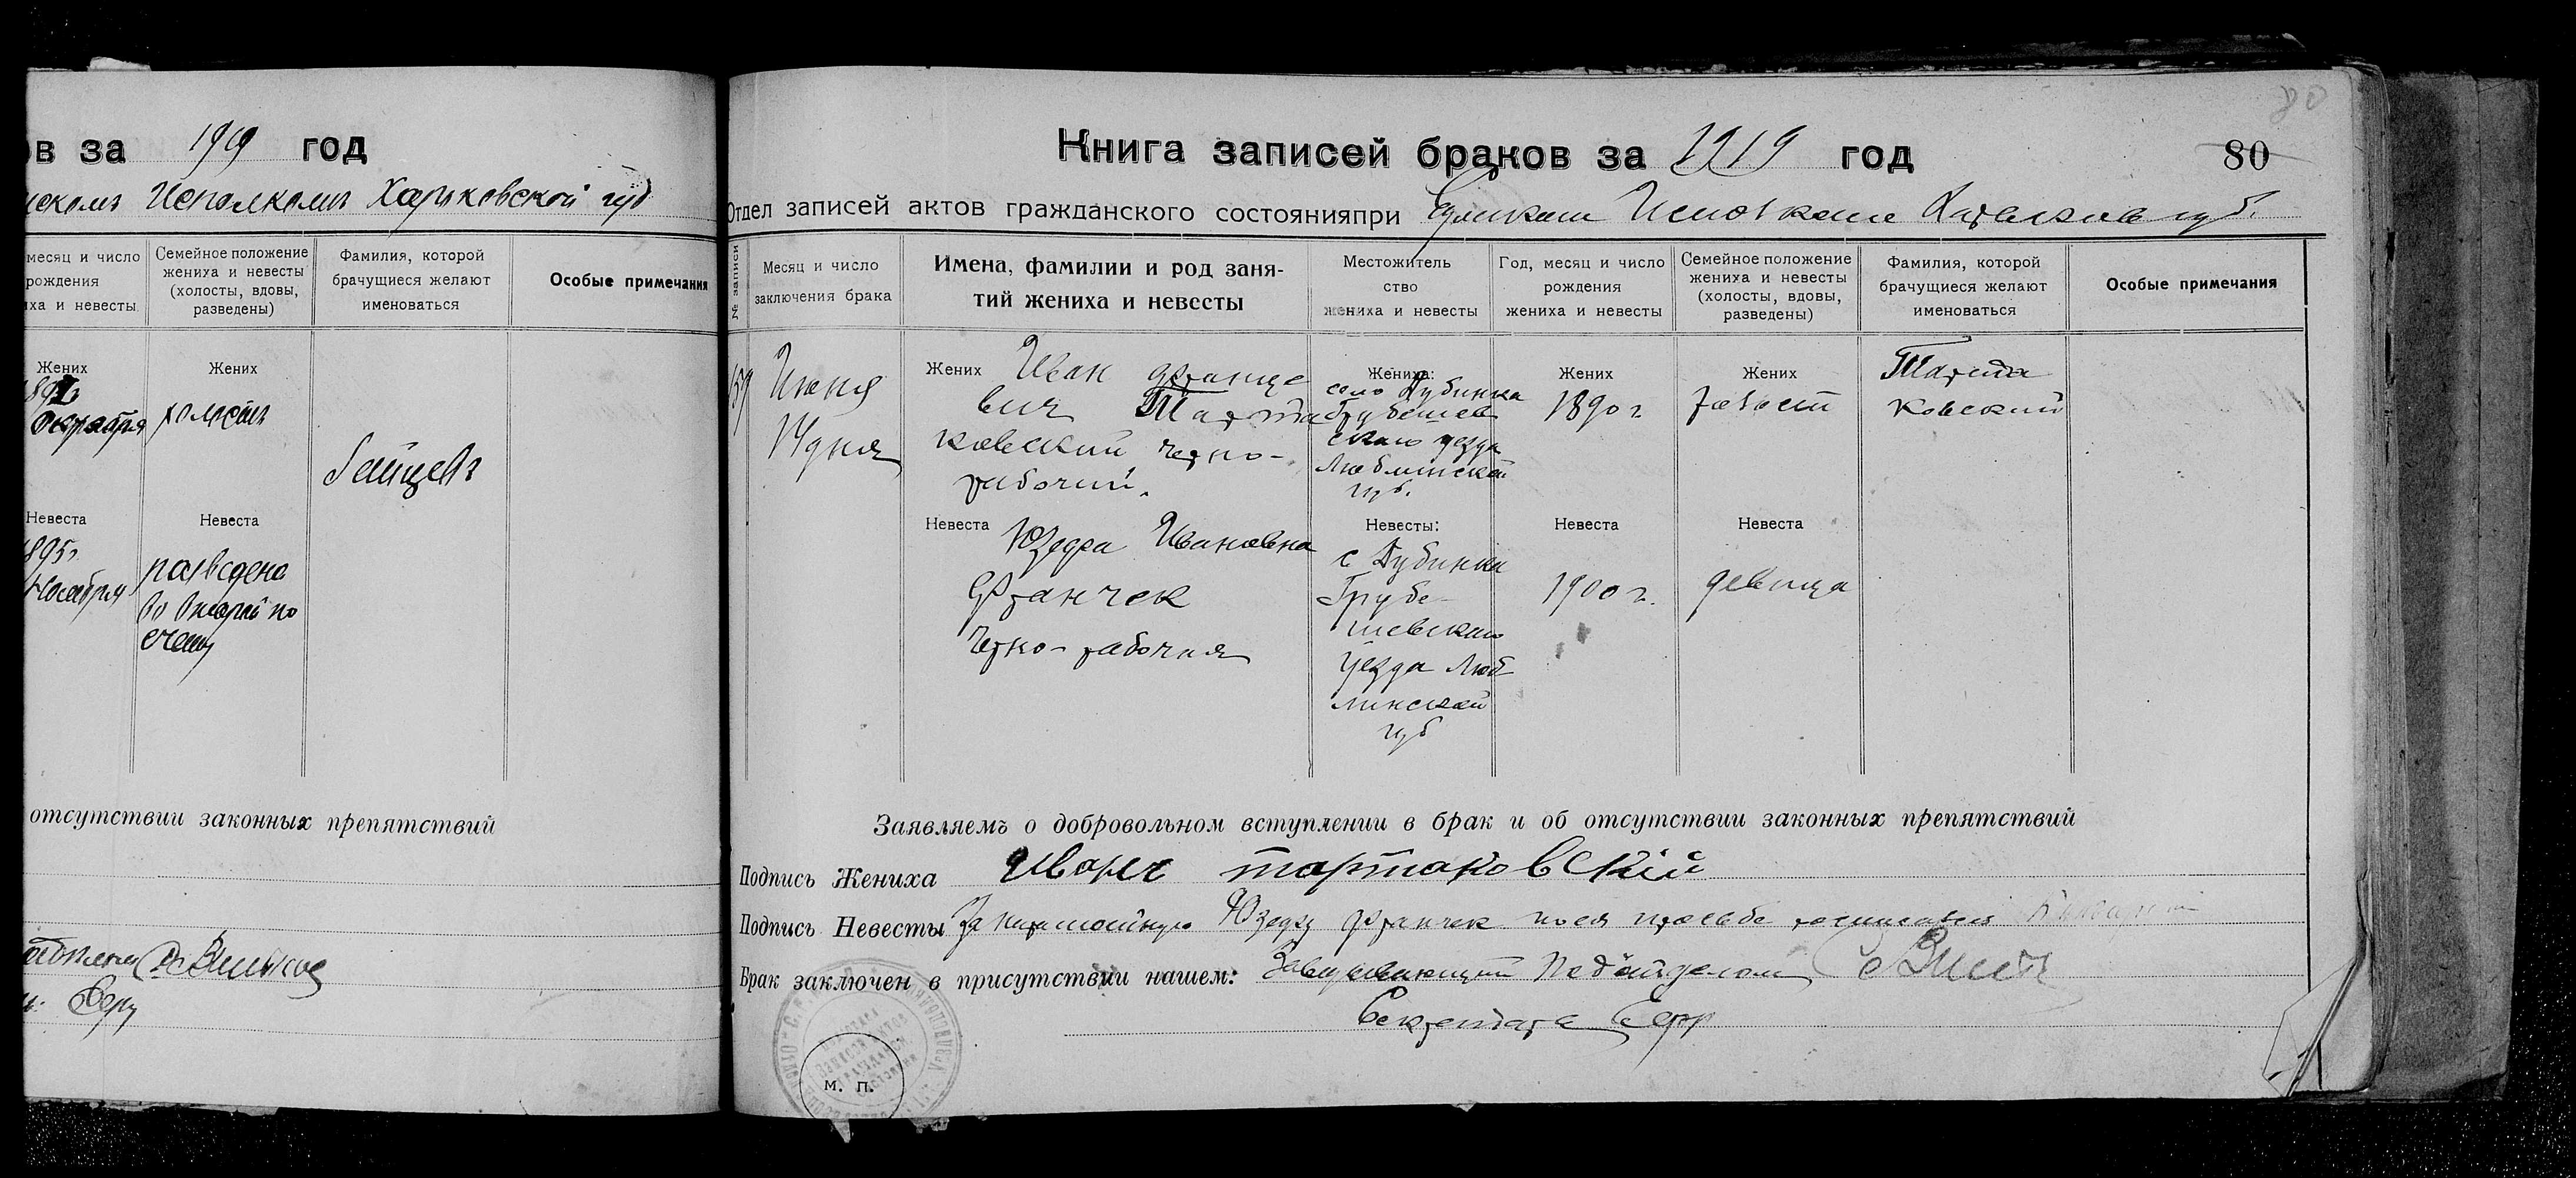 ов за 1919 год
Исполкоме Харьковской губ
месяц и число
рождения
жениха и невесты
Семейное положение
жениха и невесты
(холосты, вдовы,
разведены)
Фамилия, которой
брачущиеся желают
именоваться
Особые примечания
Жених
Октября
Жених
холост
Зайцев
Невеста
1895г.
Ноября
Невеста
разведена
отсутствии законных препятствий
80
Книга записей браков за 1919 год
80
Отдел записей актов гражданского состоянияпри Сумском Исполкоме Харьков губ.
№ записи
Месяц и число
заключения брака
Имена, фамилии и род заня-
тий жениха и невесты
Местожитель
ство
жениха и невесты
Год, месяц и число
рождения
жениха и невесты
Семейное положение
жениха и невесты
(холосты, вдовы,
разведены)
Фамилия, которой
брачущиеся желают
именоваться
Особые примечания
159
Июня
14 дня
Жених Иван Франце
вич Тарта
ковский черно-
рабочий.
Жениха:
село Дубинка
Грубешев
ского уезда
Люблинской
губ.
Жених
1890 г
Жених
холост
Тарта
ковский
Невеста Юзефа Ивановна
Франчек
Черно-рабочая
Невесты:
с Дубинки
Грубе-
шевского
уезда Люб
линской
губ
Невеста
1900 г.
Невеста
девица
Заявляемъ о добровольном вступлении в брак и об отсутствии законных препятствий
Подпись Жениха Иванъ тартаковский
Подпись Невесты За неграмотную Юзефу Франчек по ея просьбе росписался
Брак заключен в присутствии нашем: Заведывающий Подотделом
Секретарь
м. п.